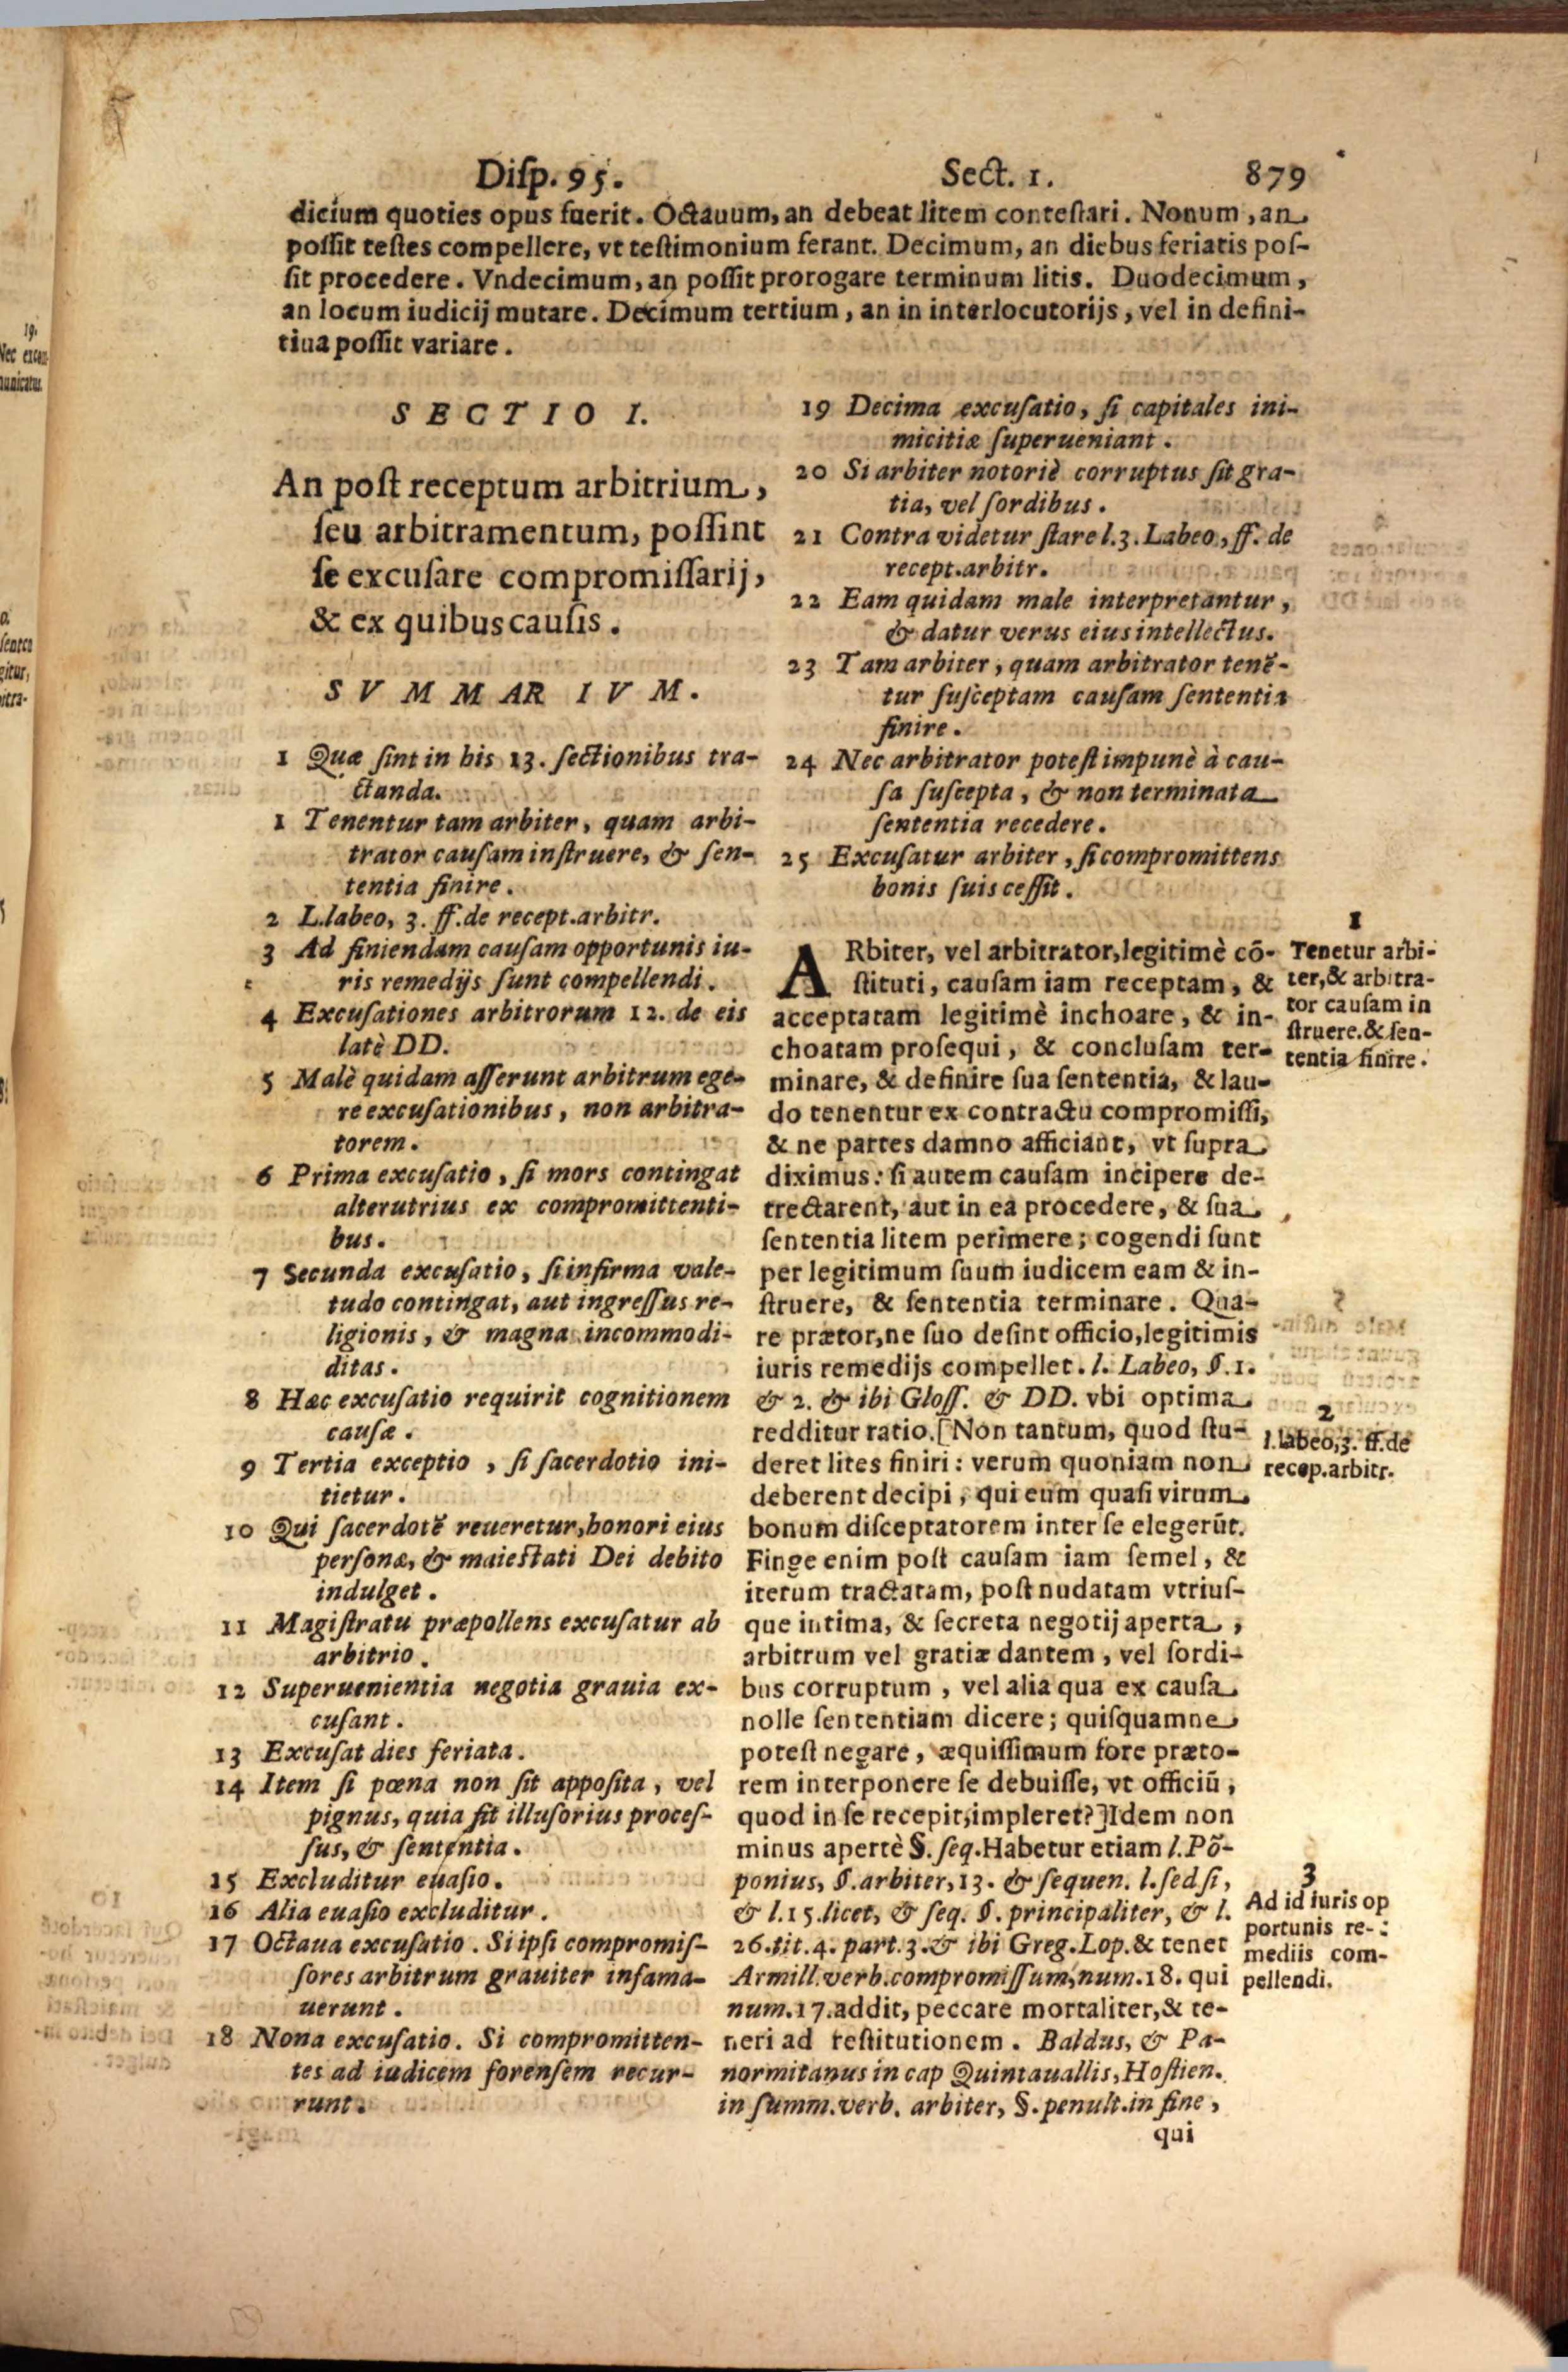 Diſp. 95. Sect. 1. 879
dicium quoties opus fuerit. Octauum, an debeat litem conteſtari. Nonum, an
poſſit teſtes compellere, vt teſtimonium ferant. Decimum, an diebus feriatis poſ-
ſit procedere. Vndecimum, an poſſit prorogare terminum litis. Duodecimum,
an locum iudicij mutare. Decimum tertium, an in interlocutorijs, vel in defini-
tiua poſſit variare.
SECTIO I.
An poſt receptum arbitrium,
ſeu arbitramentum, poſſint
ſe excuſare compromiſſarij,
& ex quibus cauſis.
SVMMARIVM.
1 Quæ ſint in his 13. ſectionibus tra-
ctanda.
1 Tenentur tam arbiter, quam arbi-
trator cauſam inſtruere, & ſen-
tentia finire.
2 L. labeo, 3. ff. de recept. arbitr.
3 Ad finiendam cauſam opportunis iu-
ris remedijs ſunt compellendi.
4 Excuſationes arbitrorum 12. de eis
latè DD.
5 Malè quidam aſſerunt arbitrum ege-
re excuſationibus, non arbitra-
torem.
6 Prima excuſatio, ſi mors contingat
alterutrius ex compromittenti-
bus.
7 Secunda excuſatio, ſi infirma vale-
tudo contingat, aut ingreſſus re-
ligionis, & magna incommodi-
ditas.
8 Hæc excuſatio requirit cognitionem
cauſæ.
9 Tertia exceptio, ſi ſacerdotio ini-
tietur.
10 Qui ſacerdotē reueretur, honori eius
perſonæ, & maieſtati Dei debito
indulget.
11 Magiſtratu præpollens excuſatur ab
arbitrio.
12 Superuenientia negotia grauia ex-
cuſant.
13 Excuſat dies feriata.
14 Item ſi pœna non ſit appoſita, vel
pignus, quia fit illuſorius proceſ-
ſus, & ſententia.
15 Excluditur euaſio.
16 Alia euaſio excluditur.
17 Octaua excuſatio. Si ipſi compromiſ-
ſores arbitrum grauiter infama-
uerunt.
18 Nona excuſatio. Si compromitten-
tes ad iudicem forenſem recur-
runt.
19 Decima excuſatio, ſi capitales ini-
micitiæ ſuperueniant.
20 Si arbiter notoriè corruptus ſit gra-
tia, vel ſordibus.
21 Contra videtur ſtare l. 3. Labeo, ff. de
recept. arbitr.
22 Eam quidam male interpretantur,
& datur verus eius intellectus.
23 Tam arbiter, quam arbitrator tenē-
tur ſuſceptam cauſam ſententia
finire.
24 Nec arbitrator poteſt impunè à cau-
ſa ſuſcepta, & non terminata
ſententia recedere.
25 Excuſatur arbiter, ſi compromittens
bonis ſuis ceſſit.
ARbiter, vel arbitrator, legitimè cō-
ſtituti, cauſam iam receptam, &
acceptatam legitimè inchoare, & in-
choatam proſequi, & concluſam ter-
minare, & definire ſua ſententia, & lau-
do tenentur ex contractu compromiſſi,
& ne partes damno afficiant, vt ſupra
diximus: ſi autem cauſam incipere de-
trectarent, aut in ea procedere, & ſua
ſententia litem perimere; cogendi ſunt
per legitimum ſuum iudicem eam & in-
ſtruere, & ſententia terminare. Qua-
re prætor, ne ſuo deſint officio, legitimis
iuris remedijs compellet. l. Labeo, §. 1.
& 2. & ibi Gloſſ. & DD. vbi optima
redditur ratio. [Non tantum, quod ſtu-
deret lites finiri: verum quoniam non
deberent decipi, qui eum quaſi virum
bonum diſceptatorem inter ſe elegerūt.
Finge enim poſt cauſam iam ſemel, &
iterum tractatam, poſt nudatam vtriuſ-
que intima, & ſecreta negotij aperta,
arbitrum vel gratiæ dantem, vel ſordi-
bus corruptum, vel alia qua ex cauſa
nolle ſententiam dicere; quiſquamne
poteſt negare, æquiſſimum fore præto-
rem interponere ſe debuiſſe, vt officiū,
quod in ſe recepit, impleret?] Idem non
minus apertè §. ſeq. Habetur etiam l. Pō-
ponius, §. arbiter, 13. & ſequen. l. ſed ſi,
& l. 15. licet, & ſeq. §. principaliter, & l.
26. tit. 4. part. 3. & ibi Greg. Lop. & tenet
Armill. verb. compromiſſum, num. 18. qui
num. 17. addit, peccare mortaliter, & te-
neri ad reſtitutionem. Baldus, & Pa-
normitanus in cap Quintauallis, Hoſtien.
in ſumm. verb. arbiter, §. penult. in fine,
qui
1
Tenetur arbi-
ter, & arbitra-
tor cauſam in
ſtruere. & ſen-
tentia finire.
2
l. labeo, 3. ff. de
recep. arbitr.
3
Ad id iuris op
portunis re-
mediis com-
pellendi.